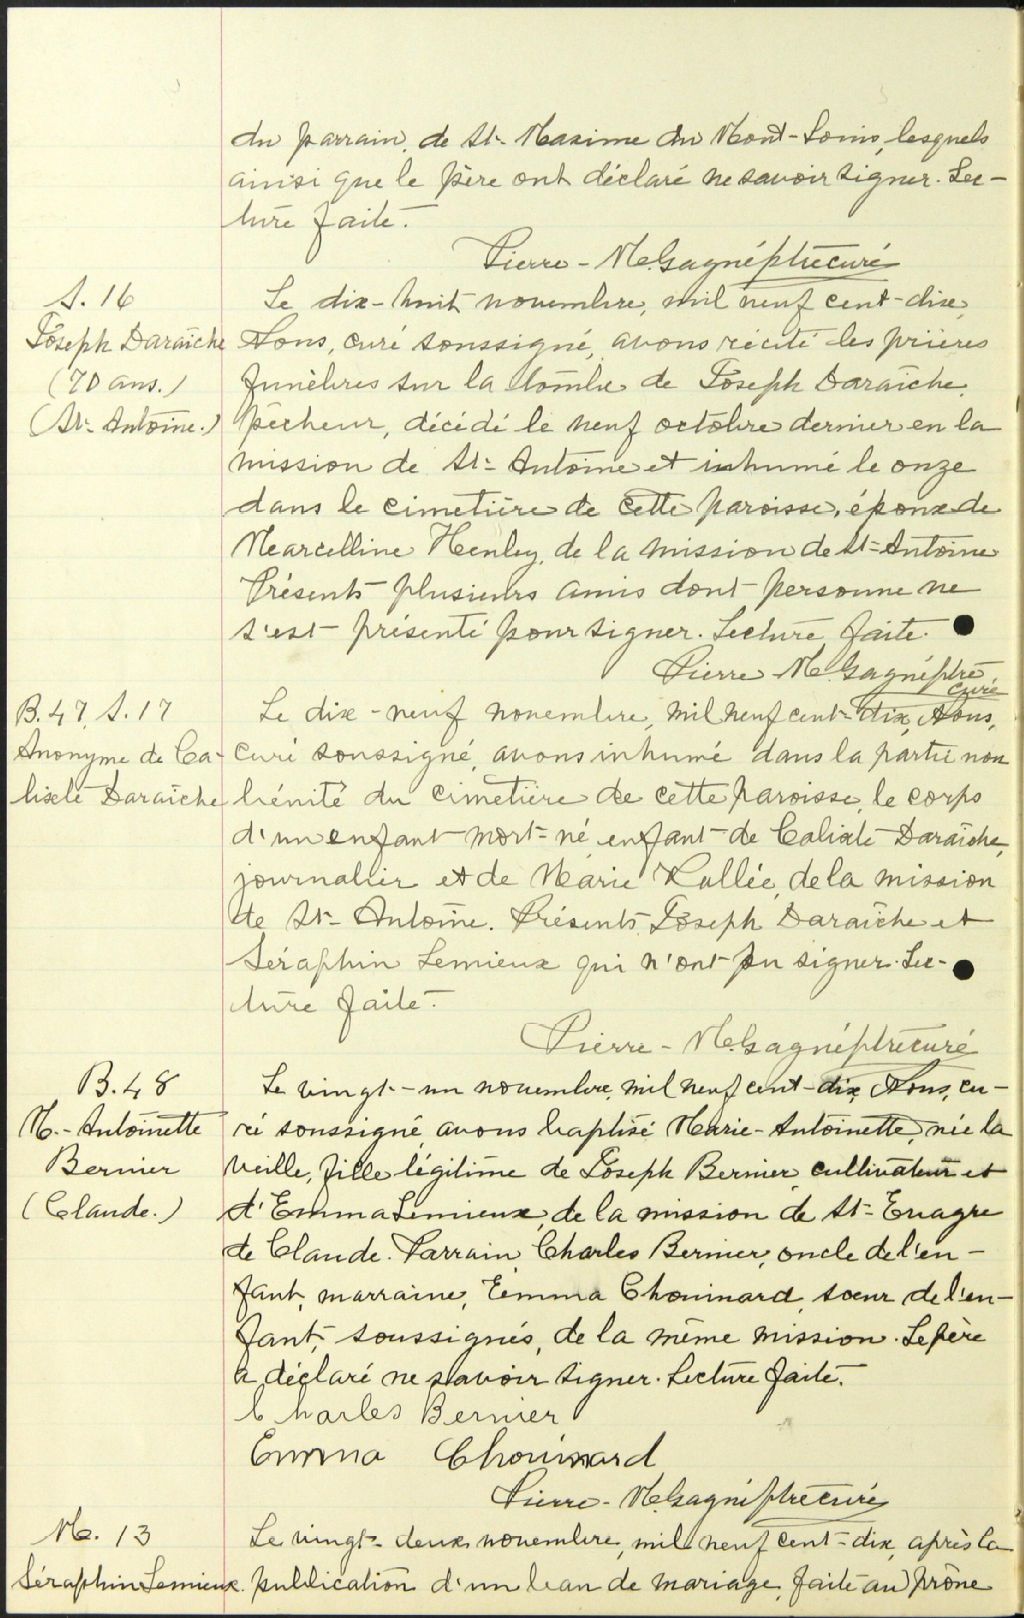 du parrain, de St-Maxime du Mont-Louis, lesquels
ainsi que le père ont déclaré ne savoir signer. Lec-
ture faite.
Pierre-M. Gagné ptre curé
S. 16
Joseph Daraîche
(70 ans.)
(St-Antoine.)
Le dix-huit novembre, mil neuf cent-dix,
Nous, curé soussigné, avons récité les prières
funèbres sur la tombe de Joseph Daraîche,
pêcheur, décédé le neuf octobre dernier en la
mission de St-Antoine et inhumé le onze
dans le cimetière de cette paroisse, époux de
Marcelline Henley, de la mission de St-Antoine
Présents plusieurs amis dont personne ne
s'est présenté pour signer. Lecture faite.
Pierre-M. Gagné ptre
curé
B. 47 S. 17
Anonyme de Ca-
lixte Daraîche
Le dix-neuf novembre, mil neuf cent-dix, Nous,
curé soussigné, avons inhumé dans la partie non
bénite du cimetière de cette paroisse, le corps
d'un enfant mort-né, enfant de Calixte Daraîche,
journalier et de Marie Vallée, de la mission
de St-Antoine. Présents Joseph Daraîche et
Séraphin Lemieux qui n'ont pu signer. Lec-
ture faite.
Pierre-M. Gagné ptre curé
B. 48
M.-Antoinette
Bernier
(Claude.)
Le vingt-un novembre, mil neuf cent-dix, Nous, cu-
ré soussigné, avons baptisé Marie-Antoinette, née la
veille, fille légitime de Joseph Bernier, cultivateur et
d'Emma Lemieux, de la mission de St-Evagre
de Claude. Parrain, Charles Bernier, oncle de l'en-
fant, marraine, Emma Chouinard, sœur de l'en-
fant, soussignés, de la même mission. Le père
a déclaré ne savoir signer. Lecture faite.
Charles Bernier
Emma Chouinard
Pierre-M. Gagné ptre curé
M. 13
Séraphin Lemieux
Le vingt-deux novembre, mil neuf cent-dix, après la
publication d'un ban de mariage, faite au prône